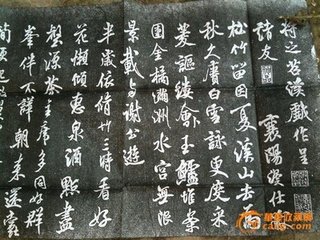 将之苕溪戲作呈
諸友
襄陽漫仕
松竹留因夏溪山去為
秋久賡白雪詠更度采
菱謳縷會玉鱸堆案
團金橘滿洲水宮無限
景載与謝公遊
半歲依脩竹三時看好
花懶傾惠泉酒點盡
壑源茶主席多同好群
峯伴不譁朝来還蠹
簡便起